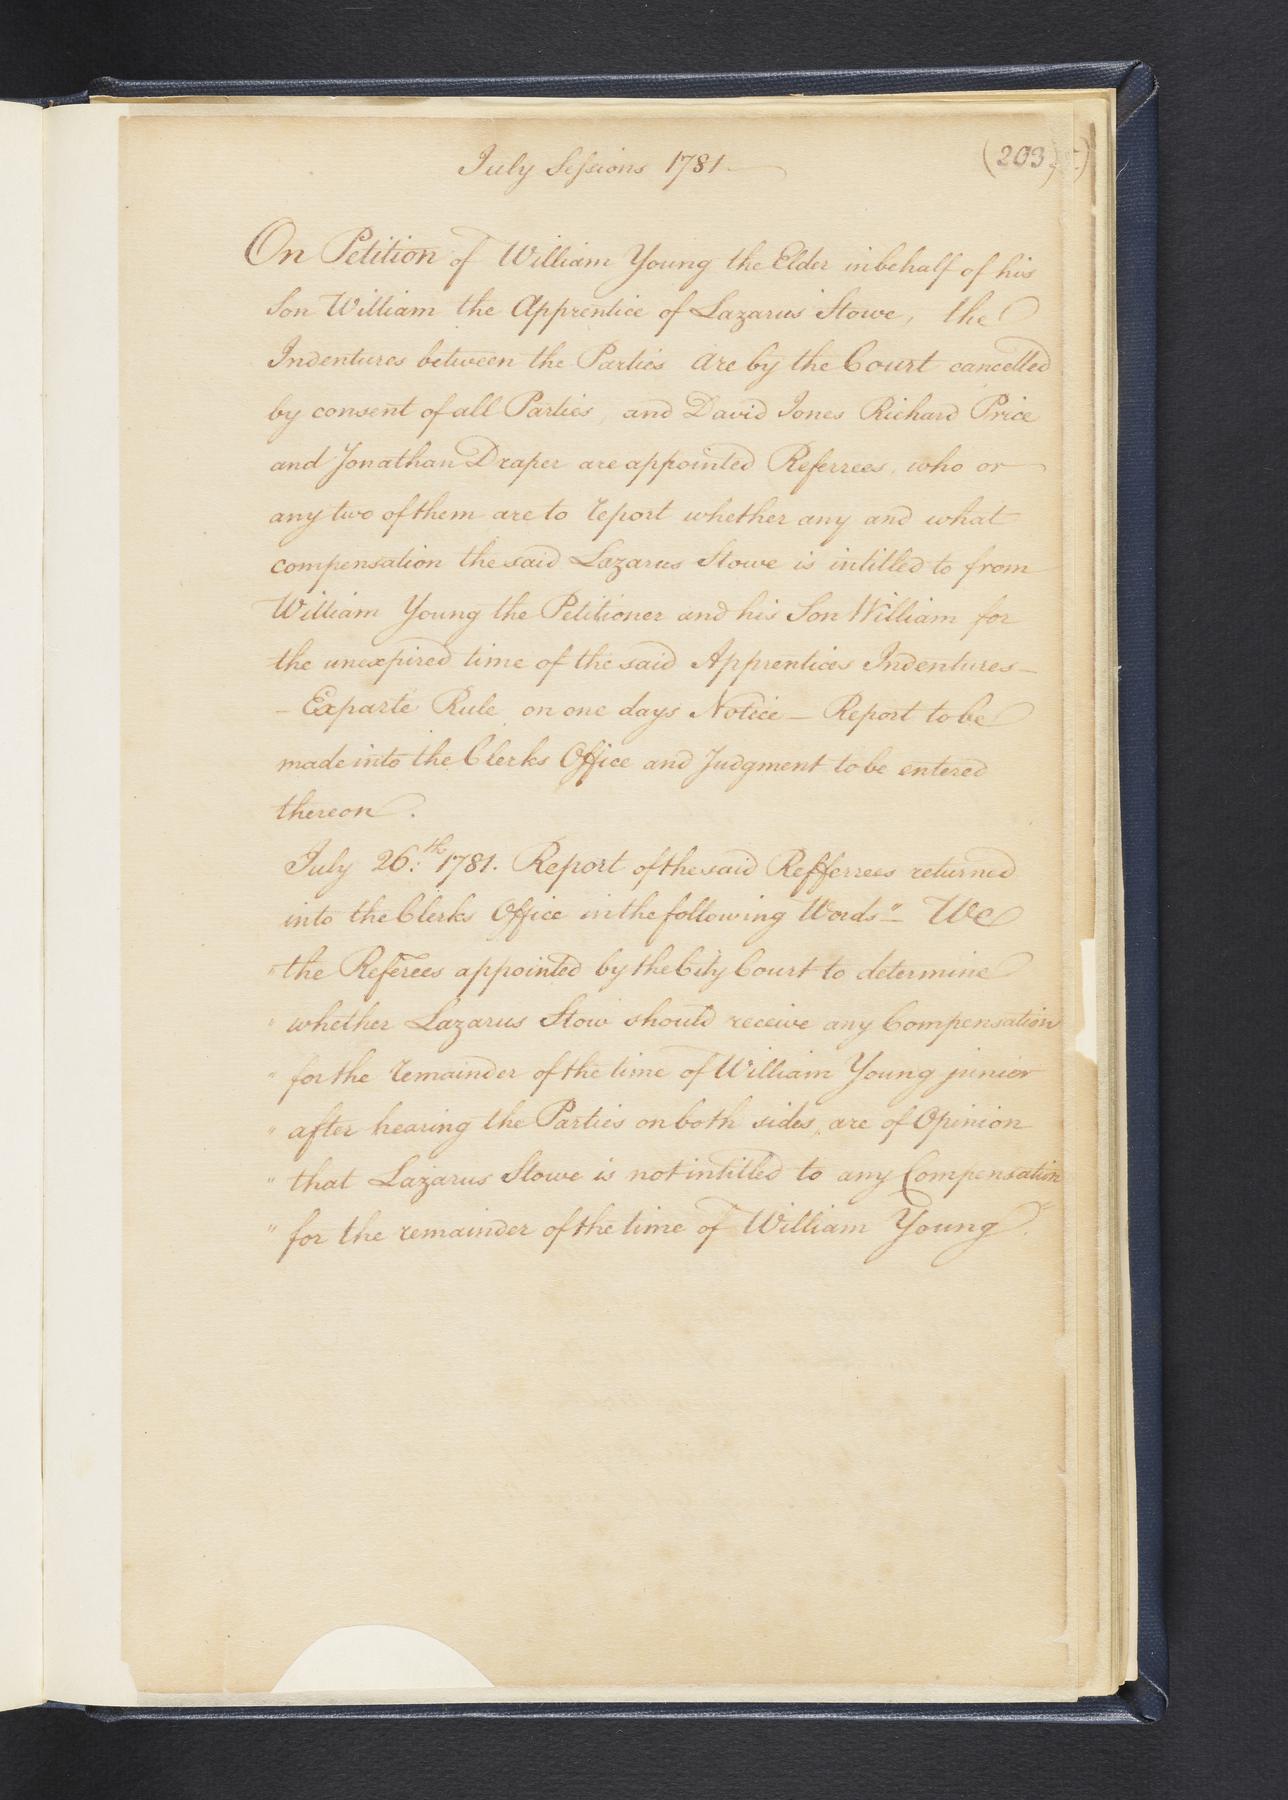 July Sessions 1781
(203)
On Petition of William Young the Elder in behalf of his
Son William the Apprentice of Lazarus Stowe, the
Indentures between the Parties are by the Court cancelled
by consent of all Parties, and David Jones Richard Price
and Jonathan Draper are appointed Referrees, who or
any two of them are to report whether any and what
compensation the said Lazarus Stowe is intitled to from
William Young the Petitioner and his Son William for
the unexpired time of the said Apprentices Indentures —
— Exparte Rule on one days Notice — Report to be
made into the Clerks Office and Judgment to be entered
thereon.
July 26:th 1781. Report of the said Refferrees returned
into the Clerks Office in the following Words "— We
" the Referees appointed by the City Court to determine
" whether Lazarus Stow should receive any Compensation
" for the remainder of the time of William Young junior
" after hearing the Parties on both sides, are of Opinion
" that Lazarus Stowe is not intitled to any Compensation
" for the remainder of the time of William Young."